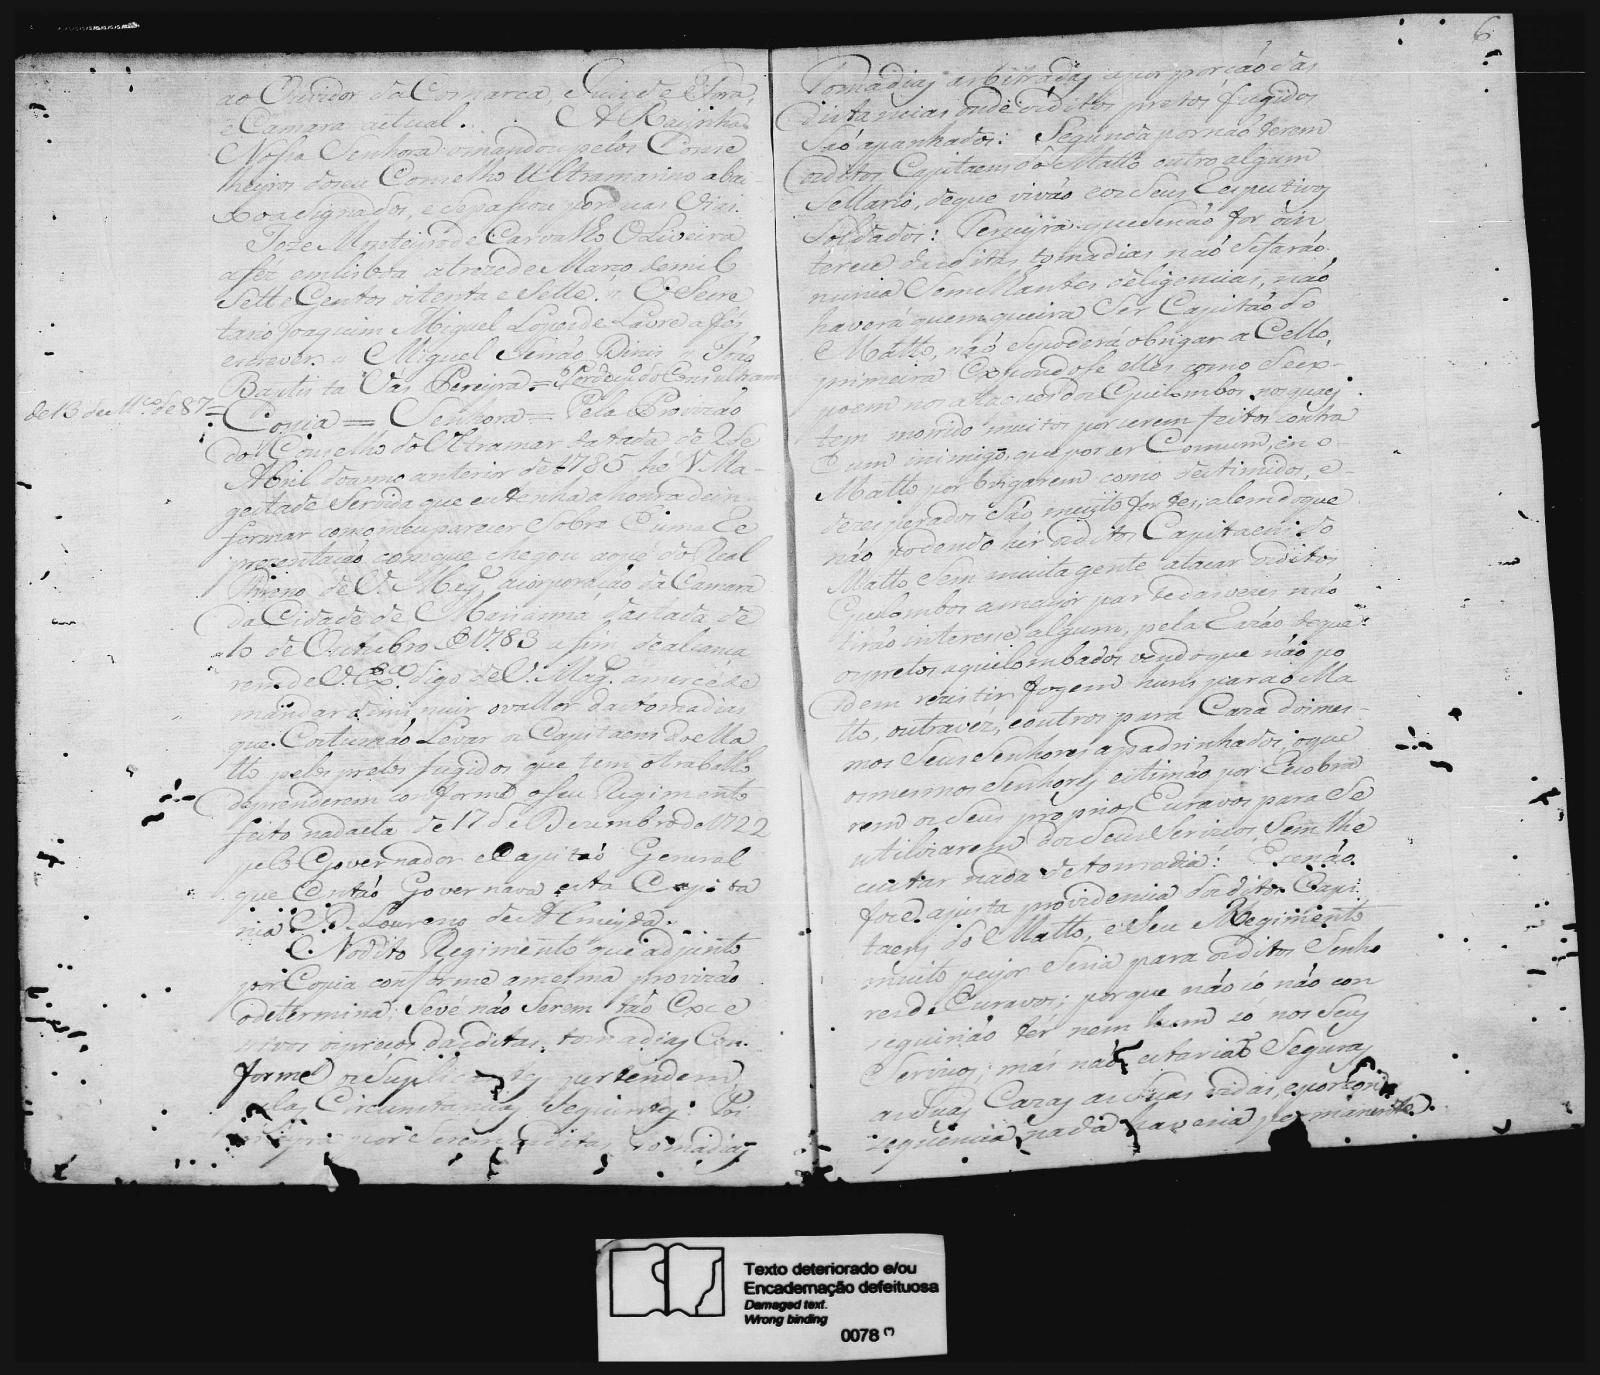 ao Ouvidor da Comarca, e Juis de Fóra,
e Camara actual. A Raỹnha
Nossa Senhora omandou pelos Conse
lheiros doseu Conselho Ultramarino abai-
xo asignados, e sepassou por duas vias.
Joze Monteiro de Carvalho Oliveira
afés emlisboa atrezede Março demil
Sette Centos oitenta e Sette. O Secre
tario Joaquim Miguel Lopes de Lavre afés
escrever. Miguel Serrão Dinis João
Baptista Vas Pereyra =
de 13 de M.ço de 87 = Copia = Senhora = Pela Provizão
do Conselho do Ultramar datada de 2 de
Abril doanno anterior de 1785 hé V. Ma-
gestade Servida que eu tenha a honra dein-
formar comomeuparecer Sobre huma Re
prezentação comque chegou aope do Real
Throno de V. Mag.e acorporação da Camara
da Cidade de Marianna dactada de
10 de Outubro de 1783 afim dealcança
rem de V. Ex.a digo de V. Mag.e amercê de
mandar diminuir ovallor dastomadias
que Costumão Levar os Capitaens do Ma
tto pelos pretos fugidos que tem otraballo
deprenderem conforme oseu Regimento
feito nadacta de 17 de Dezembro de 1722
pelo Governador e Capitão General
que Então Governava esta Capita
nia D. Lourenço de Almeyda.
Nodito Regimento que adjunto
por Copia conforme amesma provizão
odetermina; Sevé não Serem tão Exce
sivos ospreços dasditas tomadias Con-
forme os Suplicantes pertendem
pelas Circunstancias Seguintes: Pri
meyra por Serem asditas tomadias
6
Tomadias arbitradas apor porção das
distancias onde osditos pretos fugidos
São apanhados: Segunda pornão terem
osditos Capitaens do Matto outro algum
Sellario, deque vivão eos Seus Respectivos
Soldados: Terceyra quesenão for oin
terece dasditas tomadias não Sefarão
nunca Semelhantes deligencias, não
haverá quem queira Ser Capitão do
Matto, não Sepoderá obrigar a Cello,
primeira Expondose elles como Seex-
poem nos ataques dos Quilombos nosquaes
tem morrido muitos por serem feitos contra
hum inimigo, que por ser Comum, en o
Matto por brigarem como destimidos, e
dezesperados São muito fortes, alemdoque
não podendo hir osditos Capitaens do
Matto Sem muita gente atacar osditos
Quilombos amayor parte dasvezes não
tirão interese algum, pela Razão deque
ospretos aquilombados vendoque não po
dem rezistir fogem huns para o Ma
tto, outravez, eoutros para Caza dosmes-
mos Seus Senhores apadrinhados, oque
osmesmos Senhores estimão por Recobra
rem os Seus proprios Escravos para Se
utilizarem dos Seus Serviços Sem lhe
custar nada detomadia: Esenão
foce ajusta providencia dosditos Capi
taens do Matto, eSeu Regimento
muito peyor Seria para osditos Senho
resde Escravos; porque não só não con
seguirião ter nem hum só nos Seus
Serviços; más não estarião Seguras
as Suas Cazas as Suas vidas, eporcon
sequencia nada haveria permanente.
Texto deteriorado e/ou
Encadernação defeituosa
Damaged text.
Wrong binding
0078 (*)